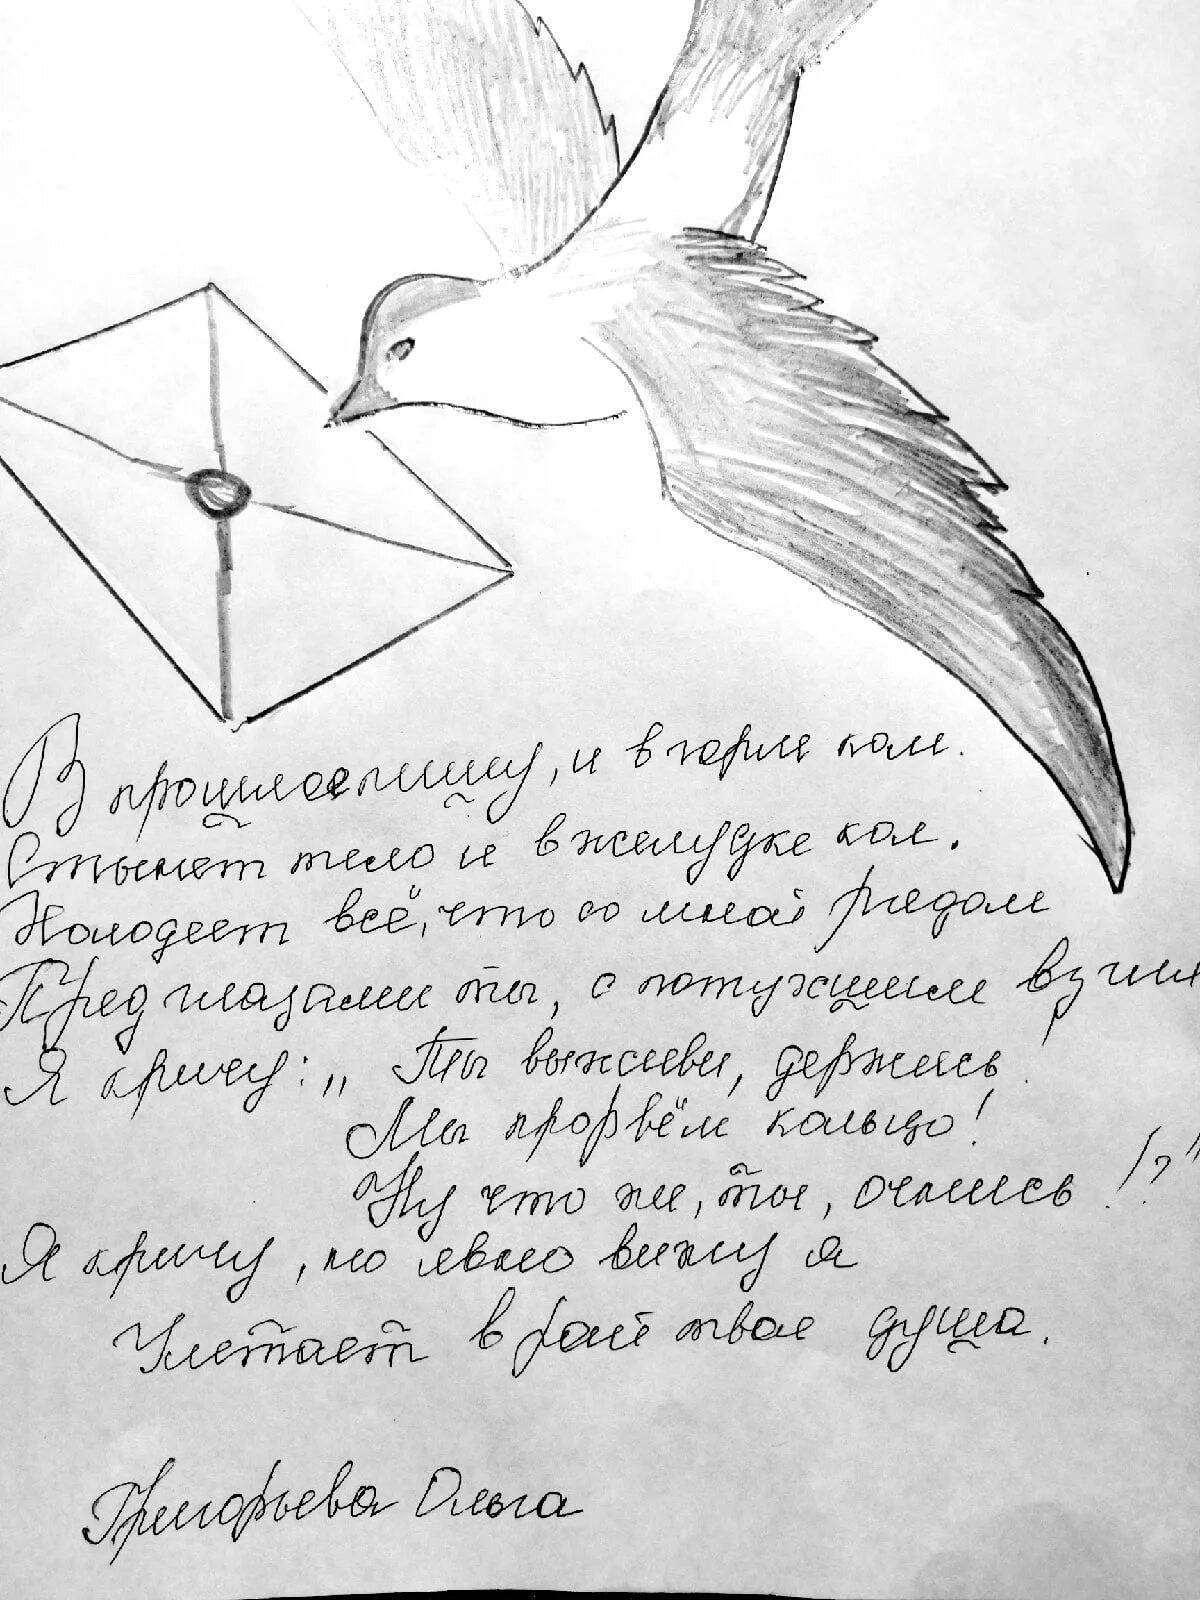 В прошлое пишу, и в горле ком.
Стынет тело и в желудке кол.
Холодеет всё, что со мной рядом
Пред глазами ты, с потухшим взгля
Я кричу: „Ты выживи, держись!
Мы прорвём кольцо!
Ну что же, ты, очнись!?"
Я кричу, но явно вижу я
Улетает в рай твоя душа.
Григорьева Ольга